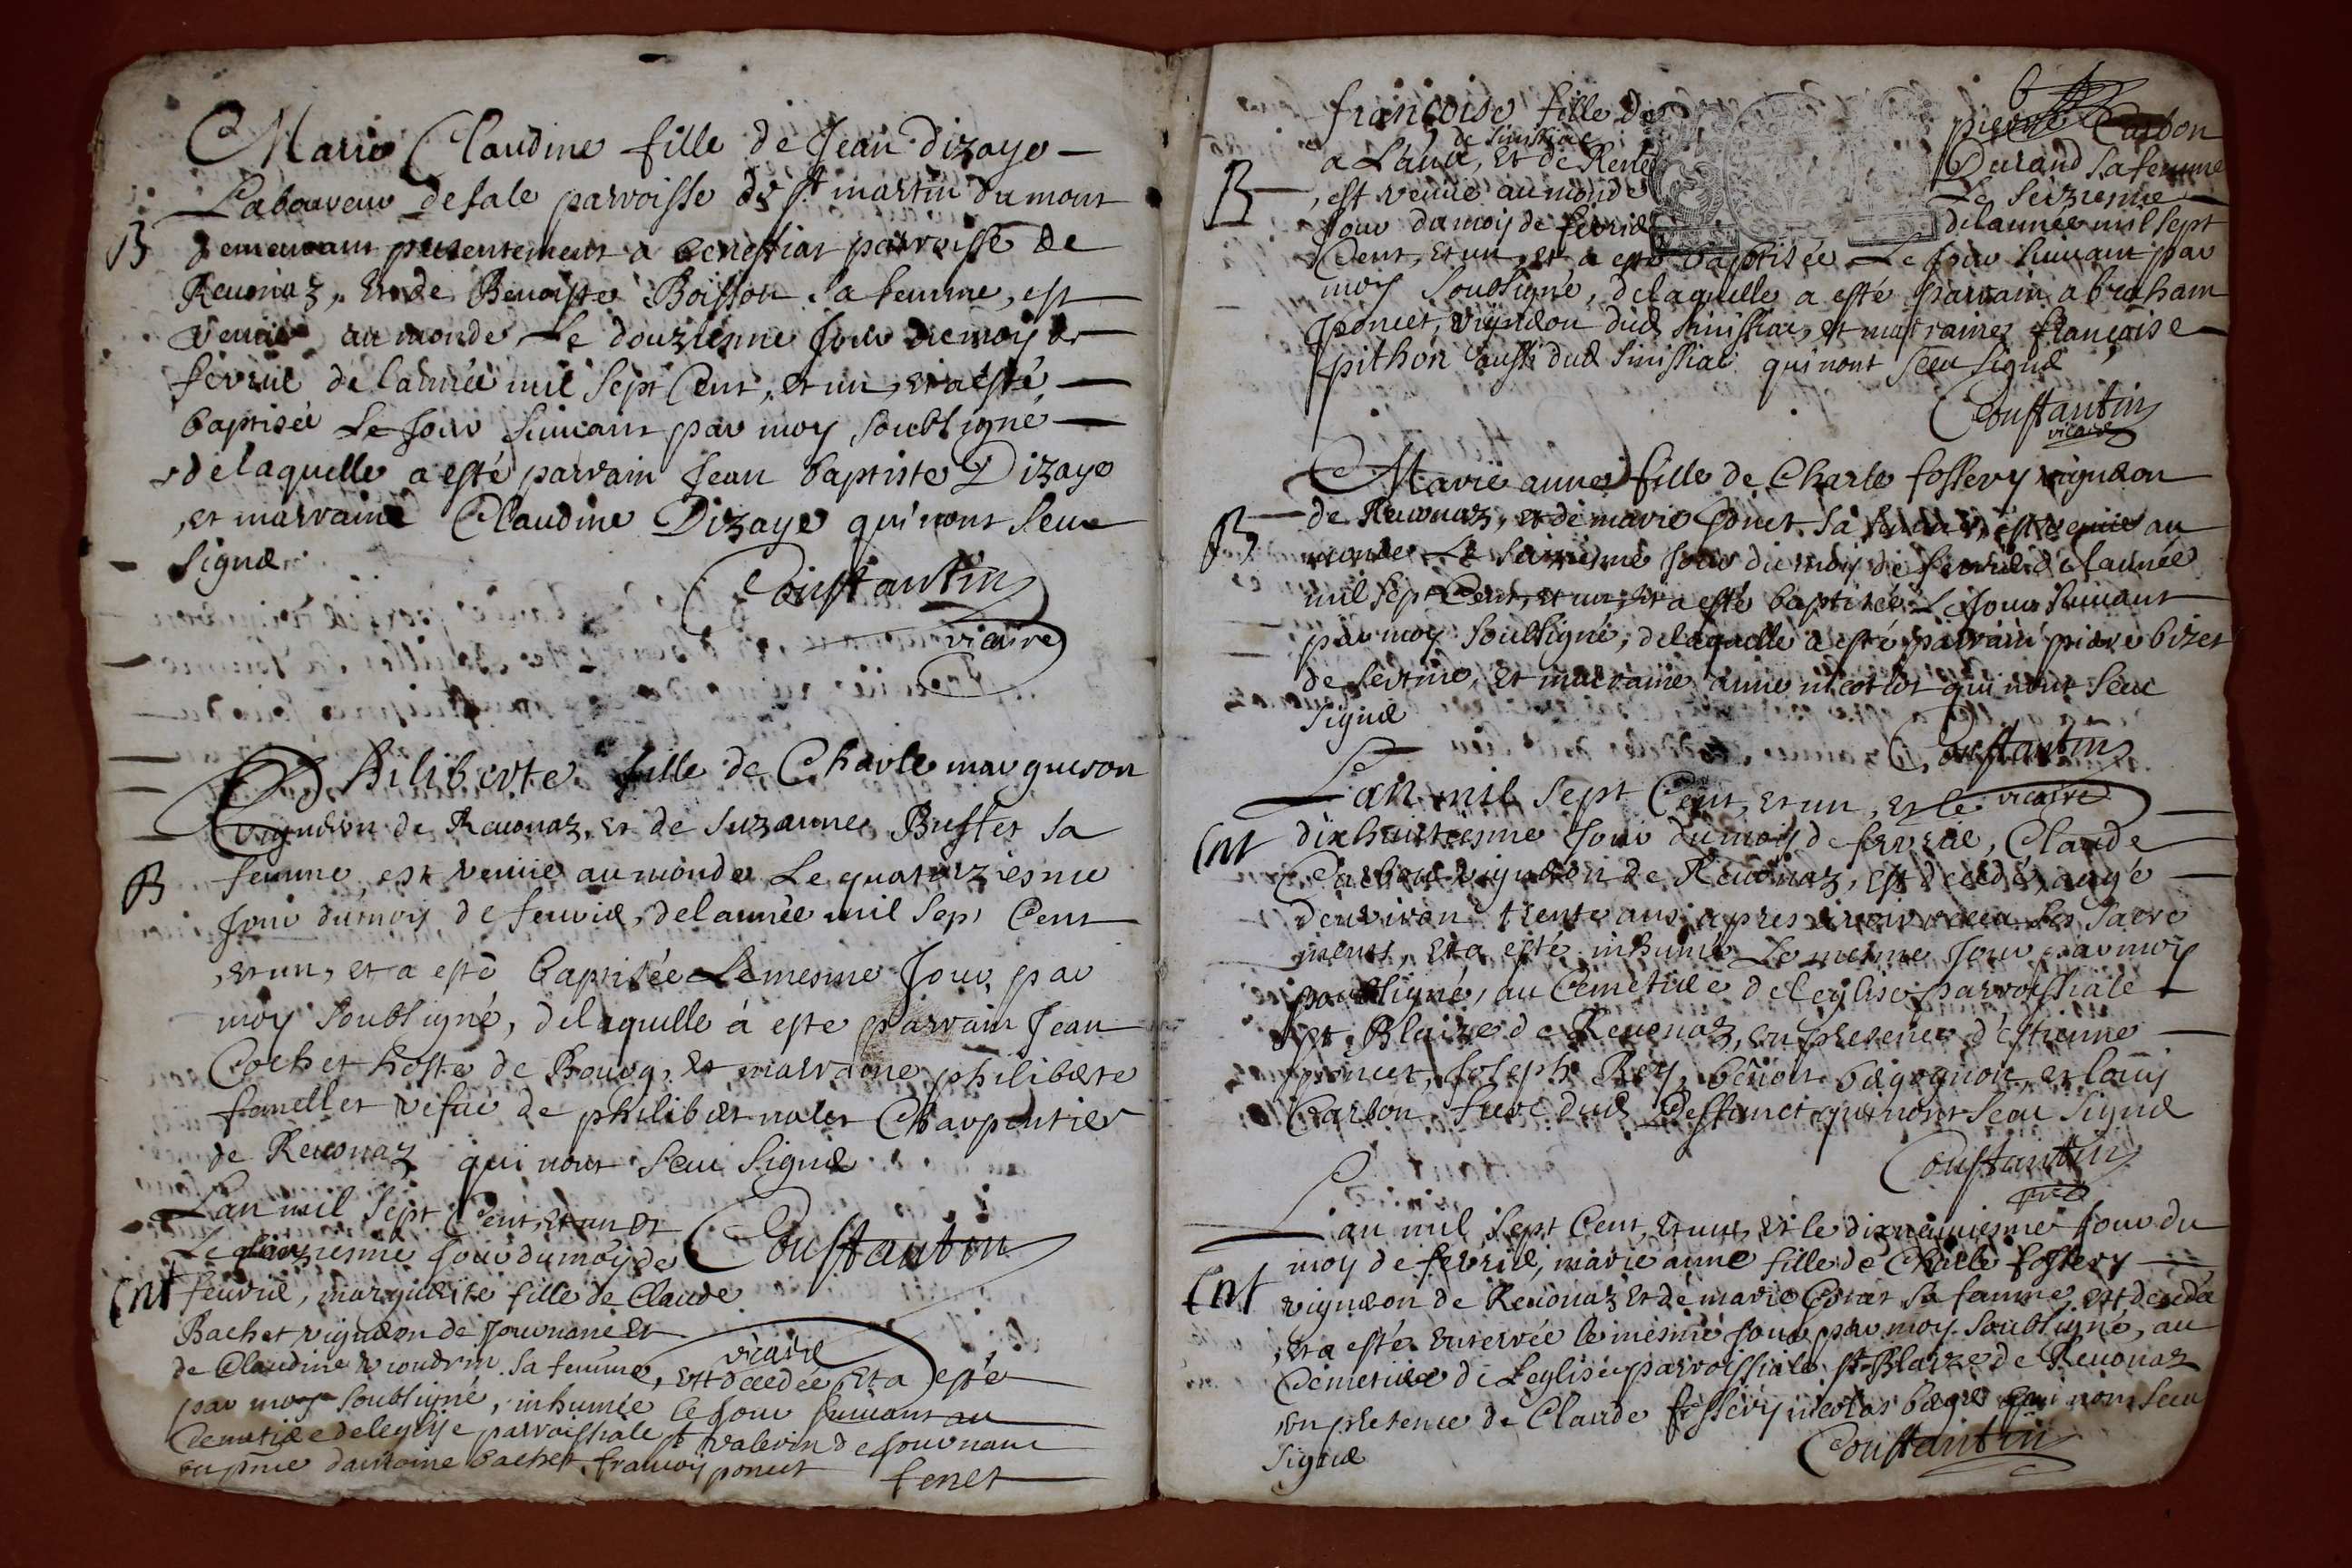 Marie Claudine fille de Jean Dizaye
Laboureur de sale parroisse de st martin du mont
B demeurant presentement a senessiat parroisse de
Reuonaz, et de Benoiste Boisson sa femme, est
venue au monde Le douziesme Jour du moy de
feurier de lannée mil sept Cent, et un, et a esté
baptisée Le Jour suiuant par moy soubsigné
delaquelle a esté parrain Jean baptiste Dizaye
, et marraine Claudine Dizaye qui nont seue
signer
Constantin
vicaire
Philiberte fille de Charle margueron
vigneron de Reuonaz, et de suzanne Buffet sa
B femme, est venüe au monde Le quatorziesme
Jour du moy de feurier, delannée mil sept Cent
, et un, et a esté Baptisée Le mesme Jour, par
moy soubsigné, delaquelle à esté parrain Jean
Cochet hoste de Bourg, et marraine philiberte
vefue de philibert Charpentier
de Reuonaz qui nont seue signer
Lan mil sept Cent, et un et
Le Jour du moy de Constantin
Ent feurier, marguerite fille de Claude
Bachet vigneron de Journans et
vicaire
de Claudine sa femme, est decedée et a esté
par moy soubsigné, inhumée le Jour suiuant au
Cemetiere de leglise parroissiale st valerin de Journans
en pnce dantoine bachet, francoy poncet
feret
francoise fille de pierre Carbon
de simssiat
a Laua, et de René Durand sa femme
B , est venüe au monde Le seiziesme
Jour du moy de feurier delannée mil sept
Cent, et un, et a esté baptisée Le Jour suiuant par
moy soubsigné, delaquelle a esté parrain abraham
poncet, vigneron dud simssiat, et marraine francoise
pithon aussi dud simssiat qui nont sceu signer
Constantin
vicaire
Marie anne fille de Charle fossery vigneron
de Reuonaz, et de marie sa femme, est venüe au
B monde Le Jour du moy de feurier de lannée
mil sept Cent, et un, et a esté baptisée Le Jour suiuant
par moy soubsigné, delaquelle a esté parrain piere bizet
de sertine, et marraine anne qui nont seue
signer
Constantin
vicaire
Lan mil sept Cent, et un, et le
Ent dixhuictiesme Jour du moy de feurier, Claude
Carbon vigneron de Reuonaz, est decedé, aagé
denuiron trente ans apres auoir receu les sacre
ments, et a esté inhumé Le mesme Jour par moy
soubsigné, au Cemetiere de leglise parroissiale
st Blaize de Reuonaz, en presence destienne
poncet, Joseph Rey, benoit et louis
Carbon frere dud deffunct qui nont sceu signer
Constantin
vic
Lan mil sept Cent, et un, et le dixneuuiesme Jour du
moy de feurier, marie anne fille de Charle fossery
Ent vigneon de Reuonaz et de marie sa femme, est decedée
, et a esté enterrée le mesme Jour par moy soubsigné, au
Cemetiere de Leglise parroissiale st Blaize de Reuonaz
en presence de Claude fossery nicolas qui nont seue
signer
Constantin